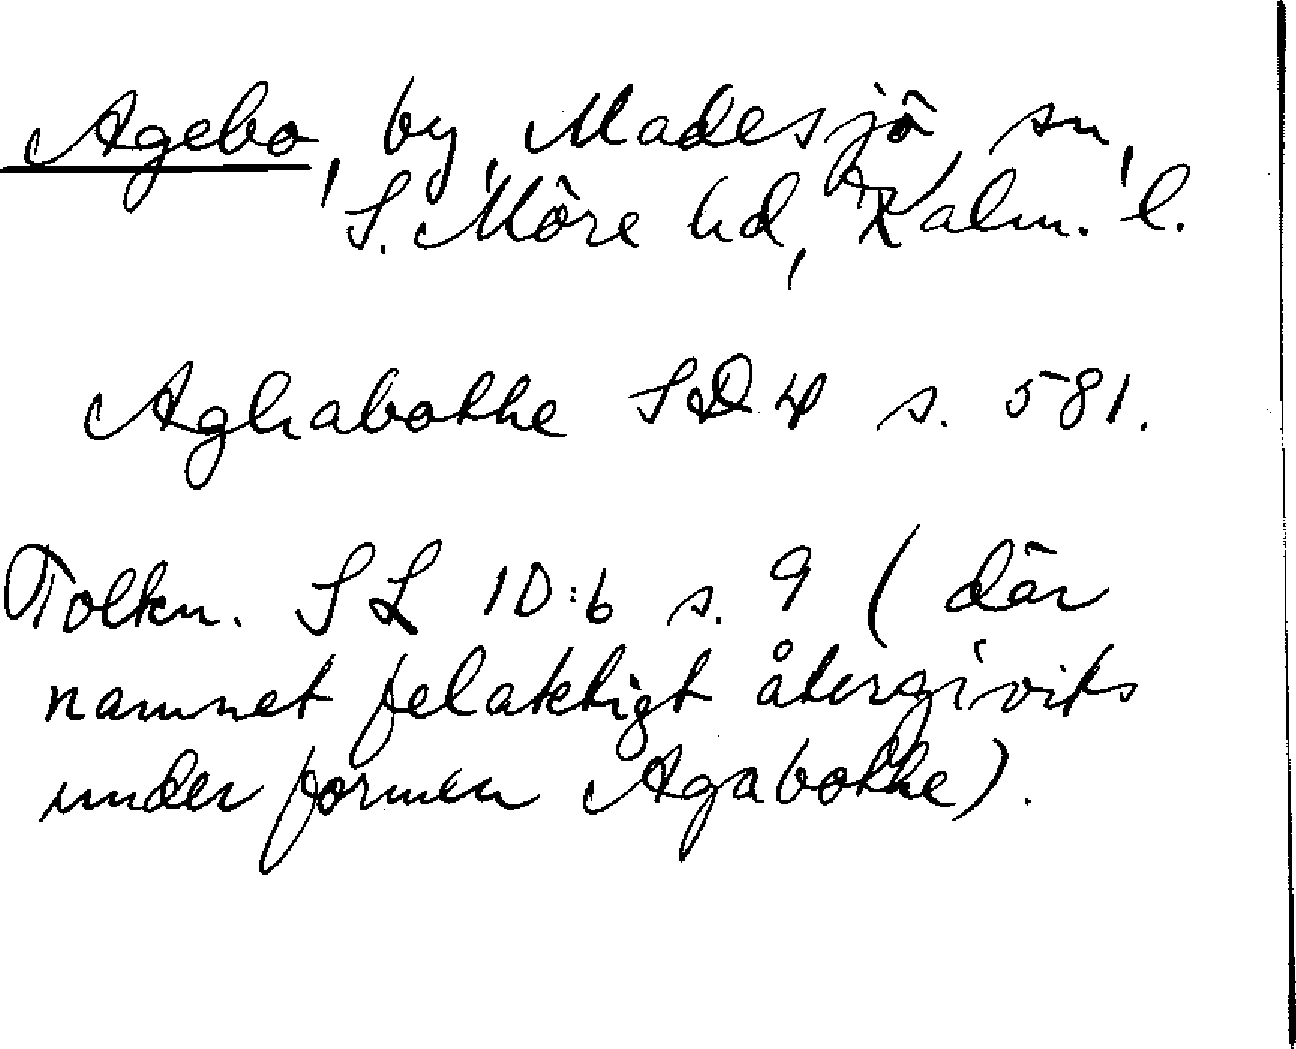 Agebo, by, Madesjö sn,
S. Möre hd, Kalm. l.
Aghabothe SD 4 s. 581.
Tolkn. SL 10:6 s. 9 (där
namnet felaktigt återgivits
under formen Agabothe).